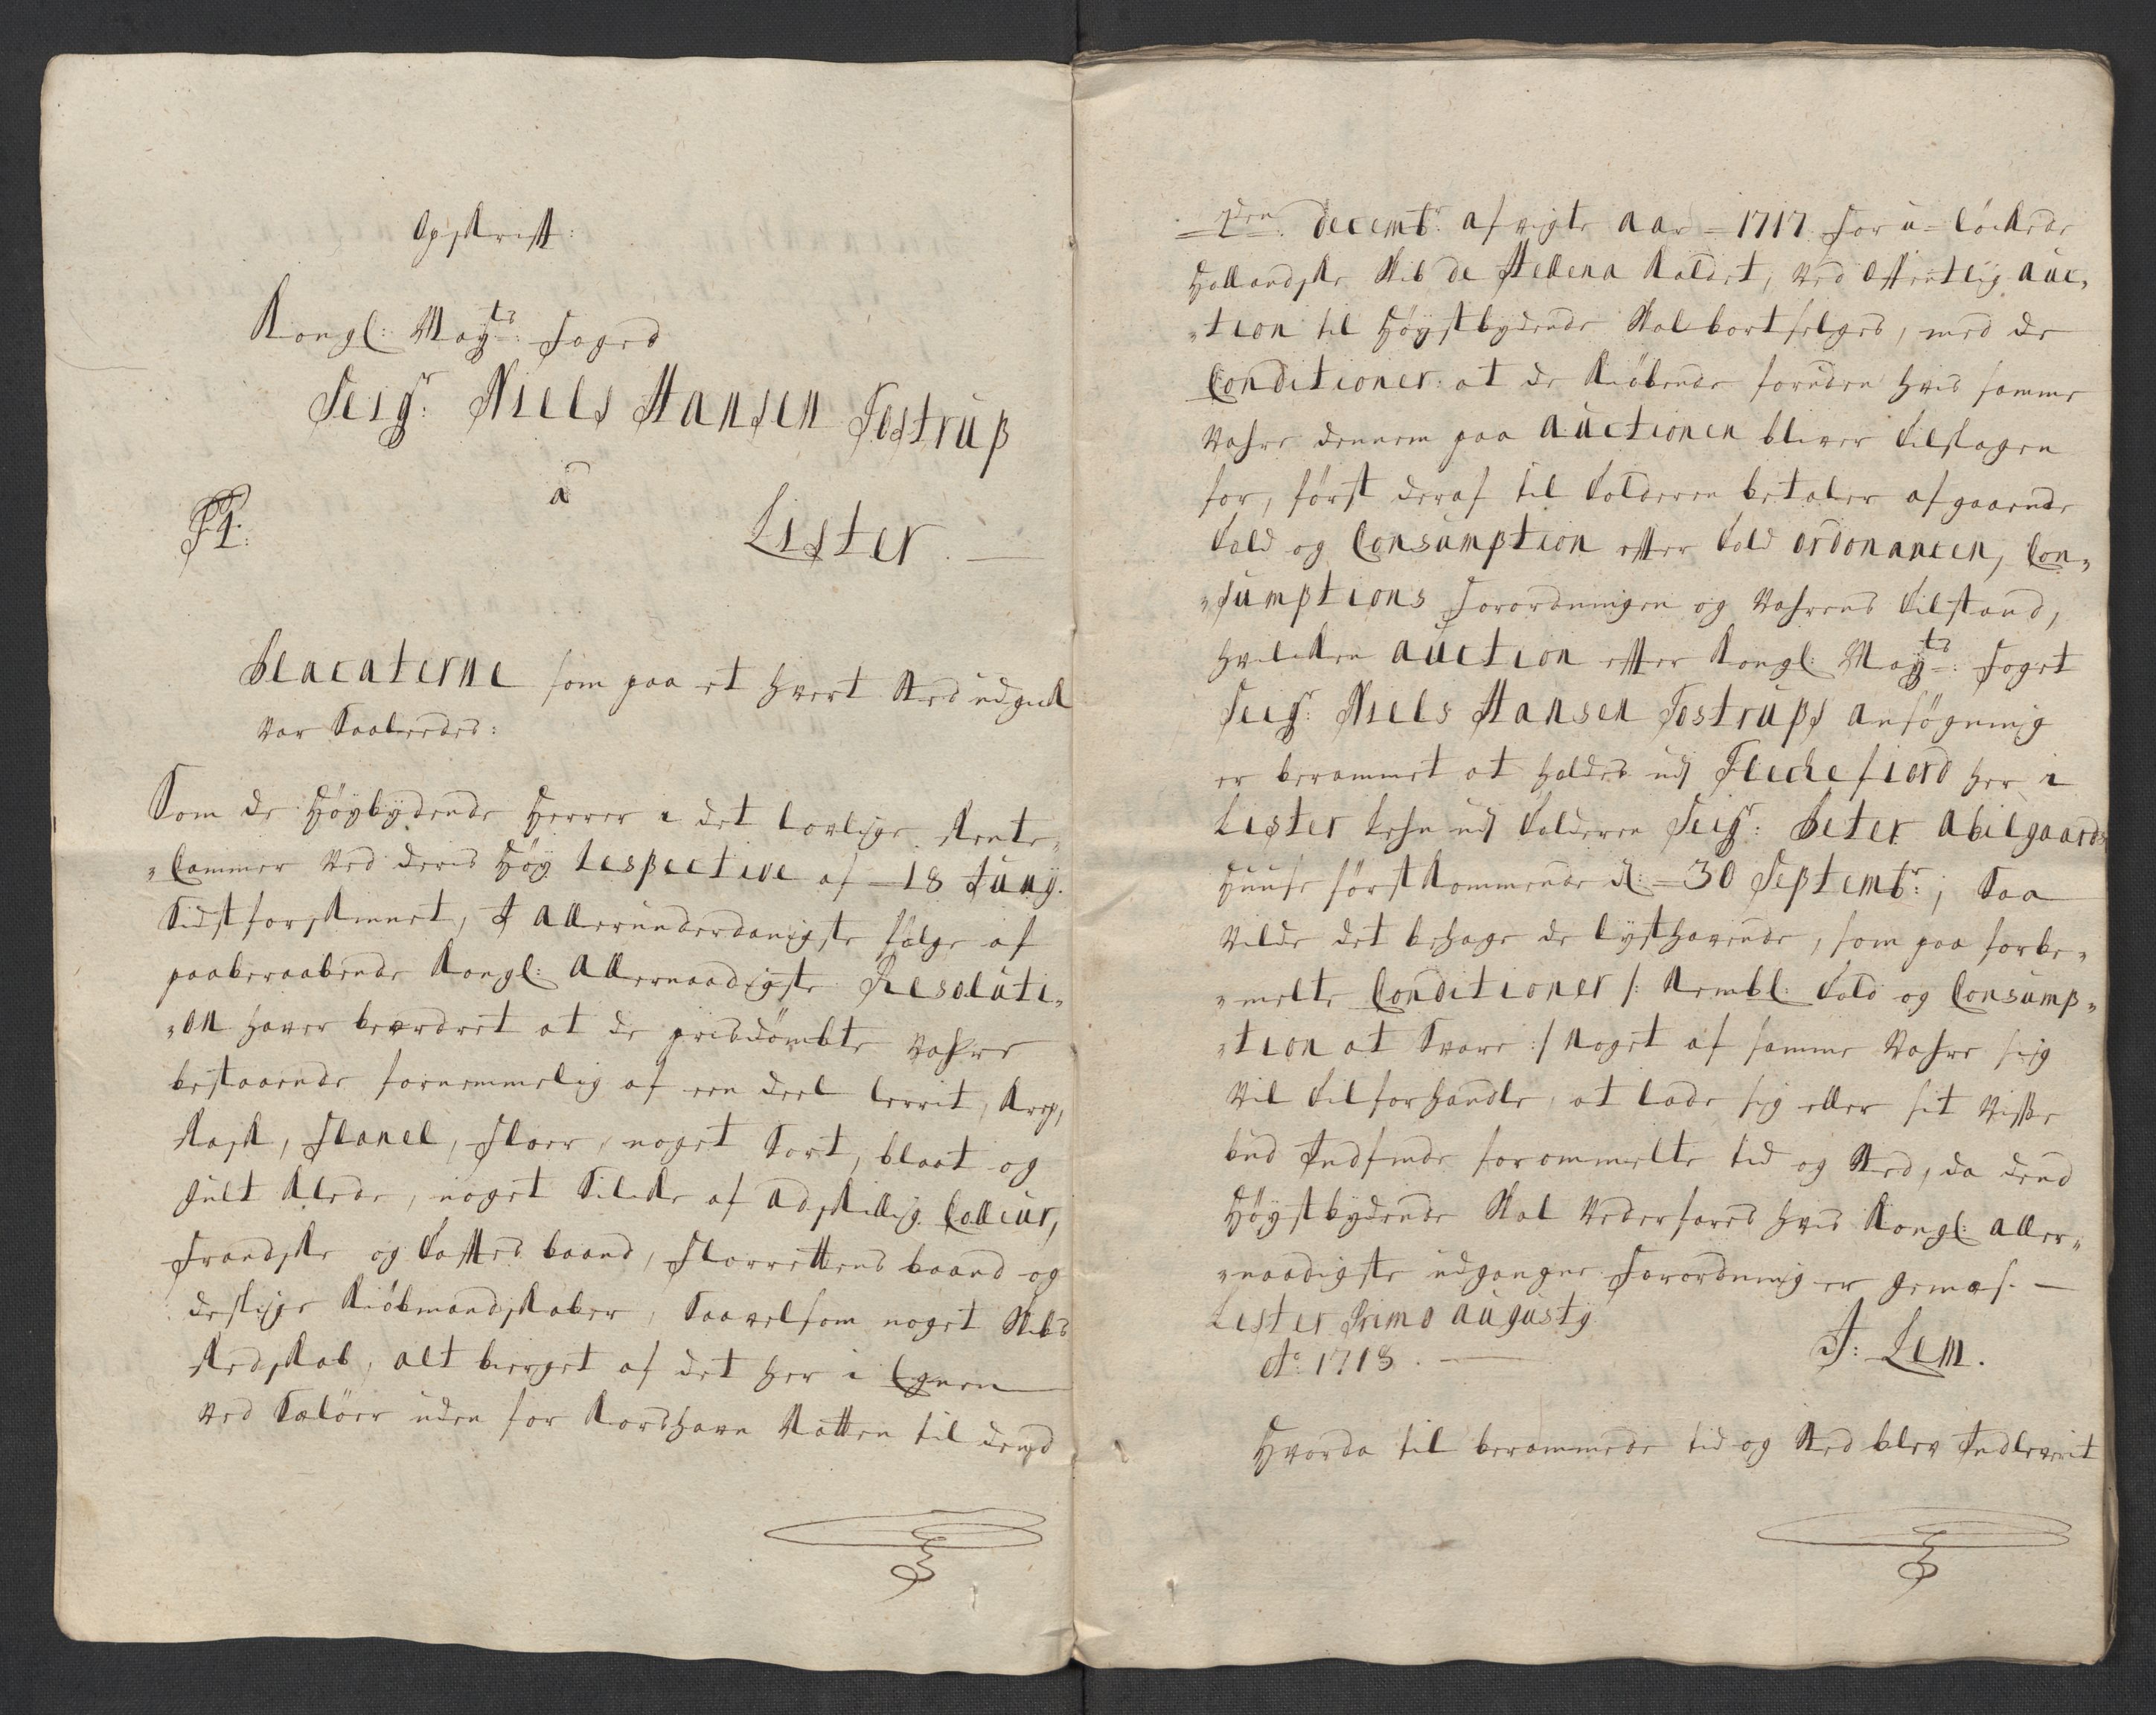 Opskrift:
Kongl: May:ts Foged
Seigr: Niels Hansen Tostrup
a
Lister. —
Placaterne som paa et hvert sted udgick
var saaledes:
Som de Høybydende Herrer i det lovlige Rente-
„Cammer ved deris Høy respective af 18 Juny.
sidstforskinnet, I allerunderdanigste følge af
paaberaabende Kongl: Allernaadigste Resoluti„
„on haver beordret at de prisdømbte vahre
bestaaende fornemmelig af een deel lerrit, Krep,
Rask, Flanel, Floer, noget sort, blaat og
gult Klæde, noget silcke af adskillig Colleur,
Frandske og Taftes baand, Florrettens baand og
deslige Kiøbmandskaber, saavelsom noget skibs
Redskab, alt bierget af det her i Egnen
ved Seløer uden for Korshavn Natten til dend
= 2den: decembr: afvigte aar = 1717 for u-løckede
Hollandske skib de Hellena kaldet, ved offentlig auc„
„tion til Høystbydende skal bortselges, med de
Conditioner: at de kiøbende foruden hvis samme
vahre dennem paa auctionen bliver tilslagen
for, først deraf til tolderen betaler afgaaende
told og Consumption efter told ordonancen, Con„
„sumptions Forordningen og vahrens tilstand,
hvilcken auction efter Kongl: May:ts Foget
Seigr: Niels Hansen Tostrups ansøgning
er berammet at holdes udj Fleckefiord her i
Lister Lehn udj tolderen Seigr: Peter Abilgaards
Huuse førstkommende d: = 30 Septembr:; saa
vilde det behage de lysthavende, som paa forbe„
„melte Conditioner /: nembl: told og Consump„
„tion at svare :/ noget af samme vahre sig
vil tilforhandle, at lade sig eller sit visse
bud Indfinde forommelte tid og sted, da dend
Høystbydende skal vederfares hvis Kongl: aller„
„naadigste udgangne Forordning er gemæs. —
Lister Primo augusty
Ao: 1718. —
J: Lem.
Hvorda til berammede tid og sted blev Indleverit